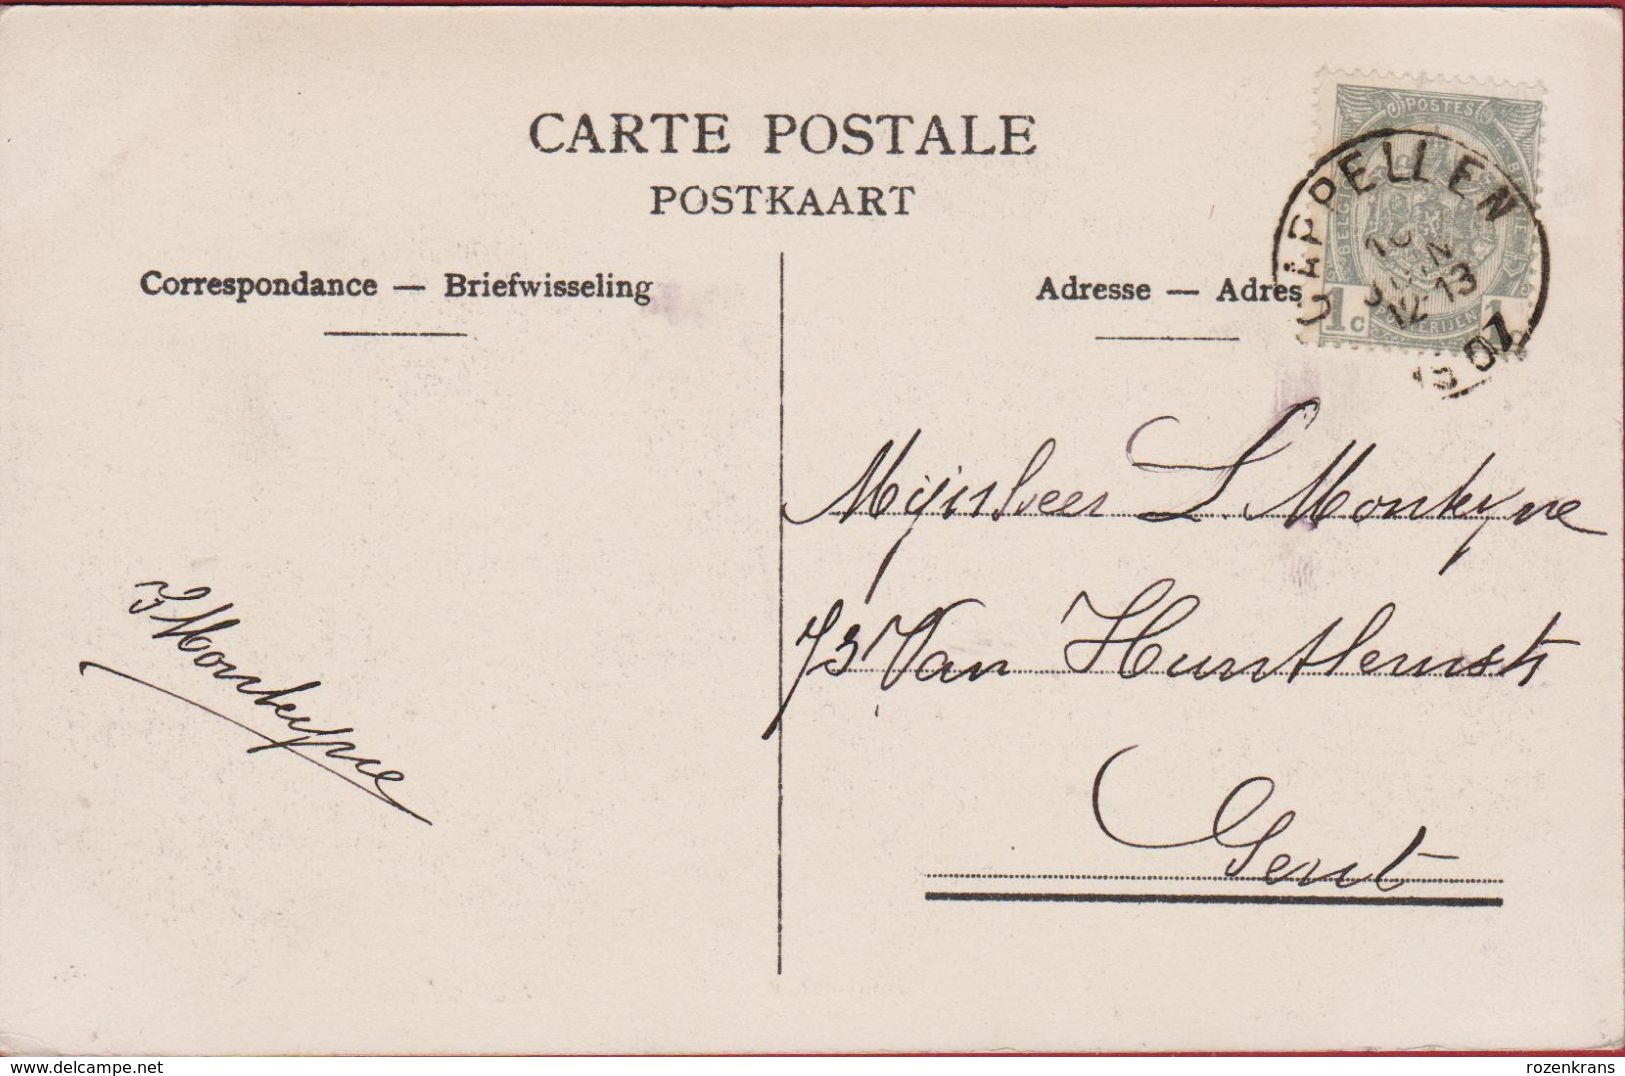 CARTE POSTALE
POSTKAART
Correspondance — Briefwisseling
Adresse — Adres
POSTES
1c 1c
CAPPELLEN
JUIN
12-13
07
Mijnheer L. Monteyne
73 Van Hunthemstr
Gent
J Monteyne
delcampe.net
rozenkrans